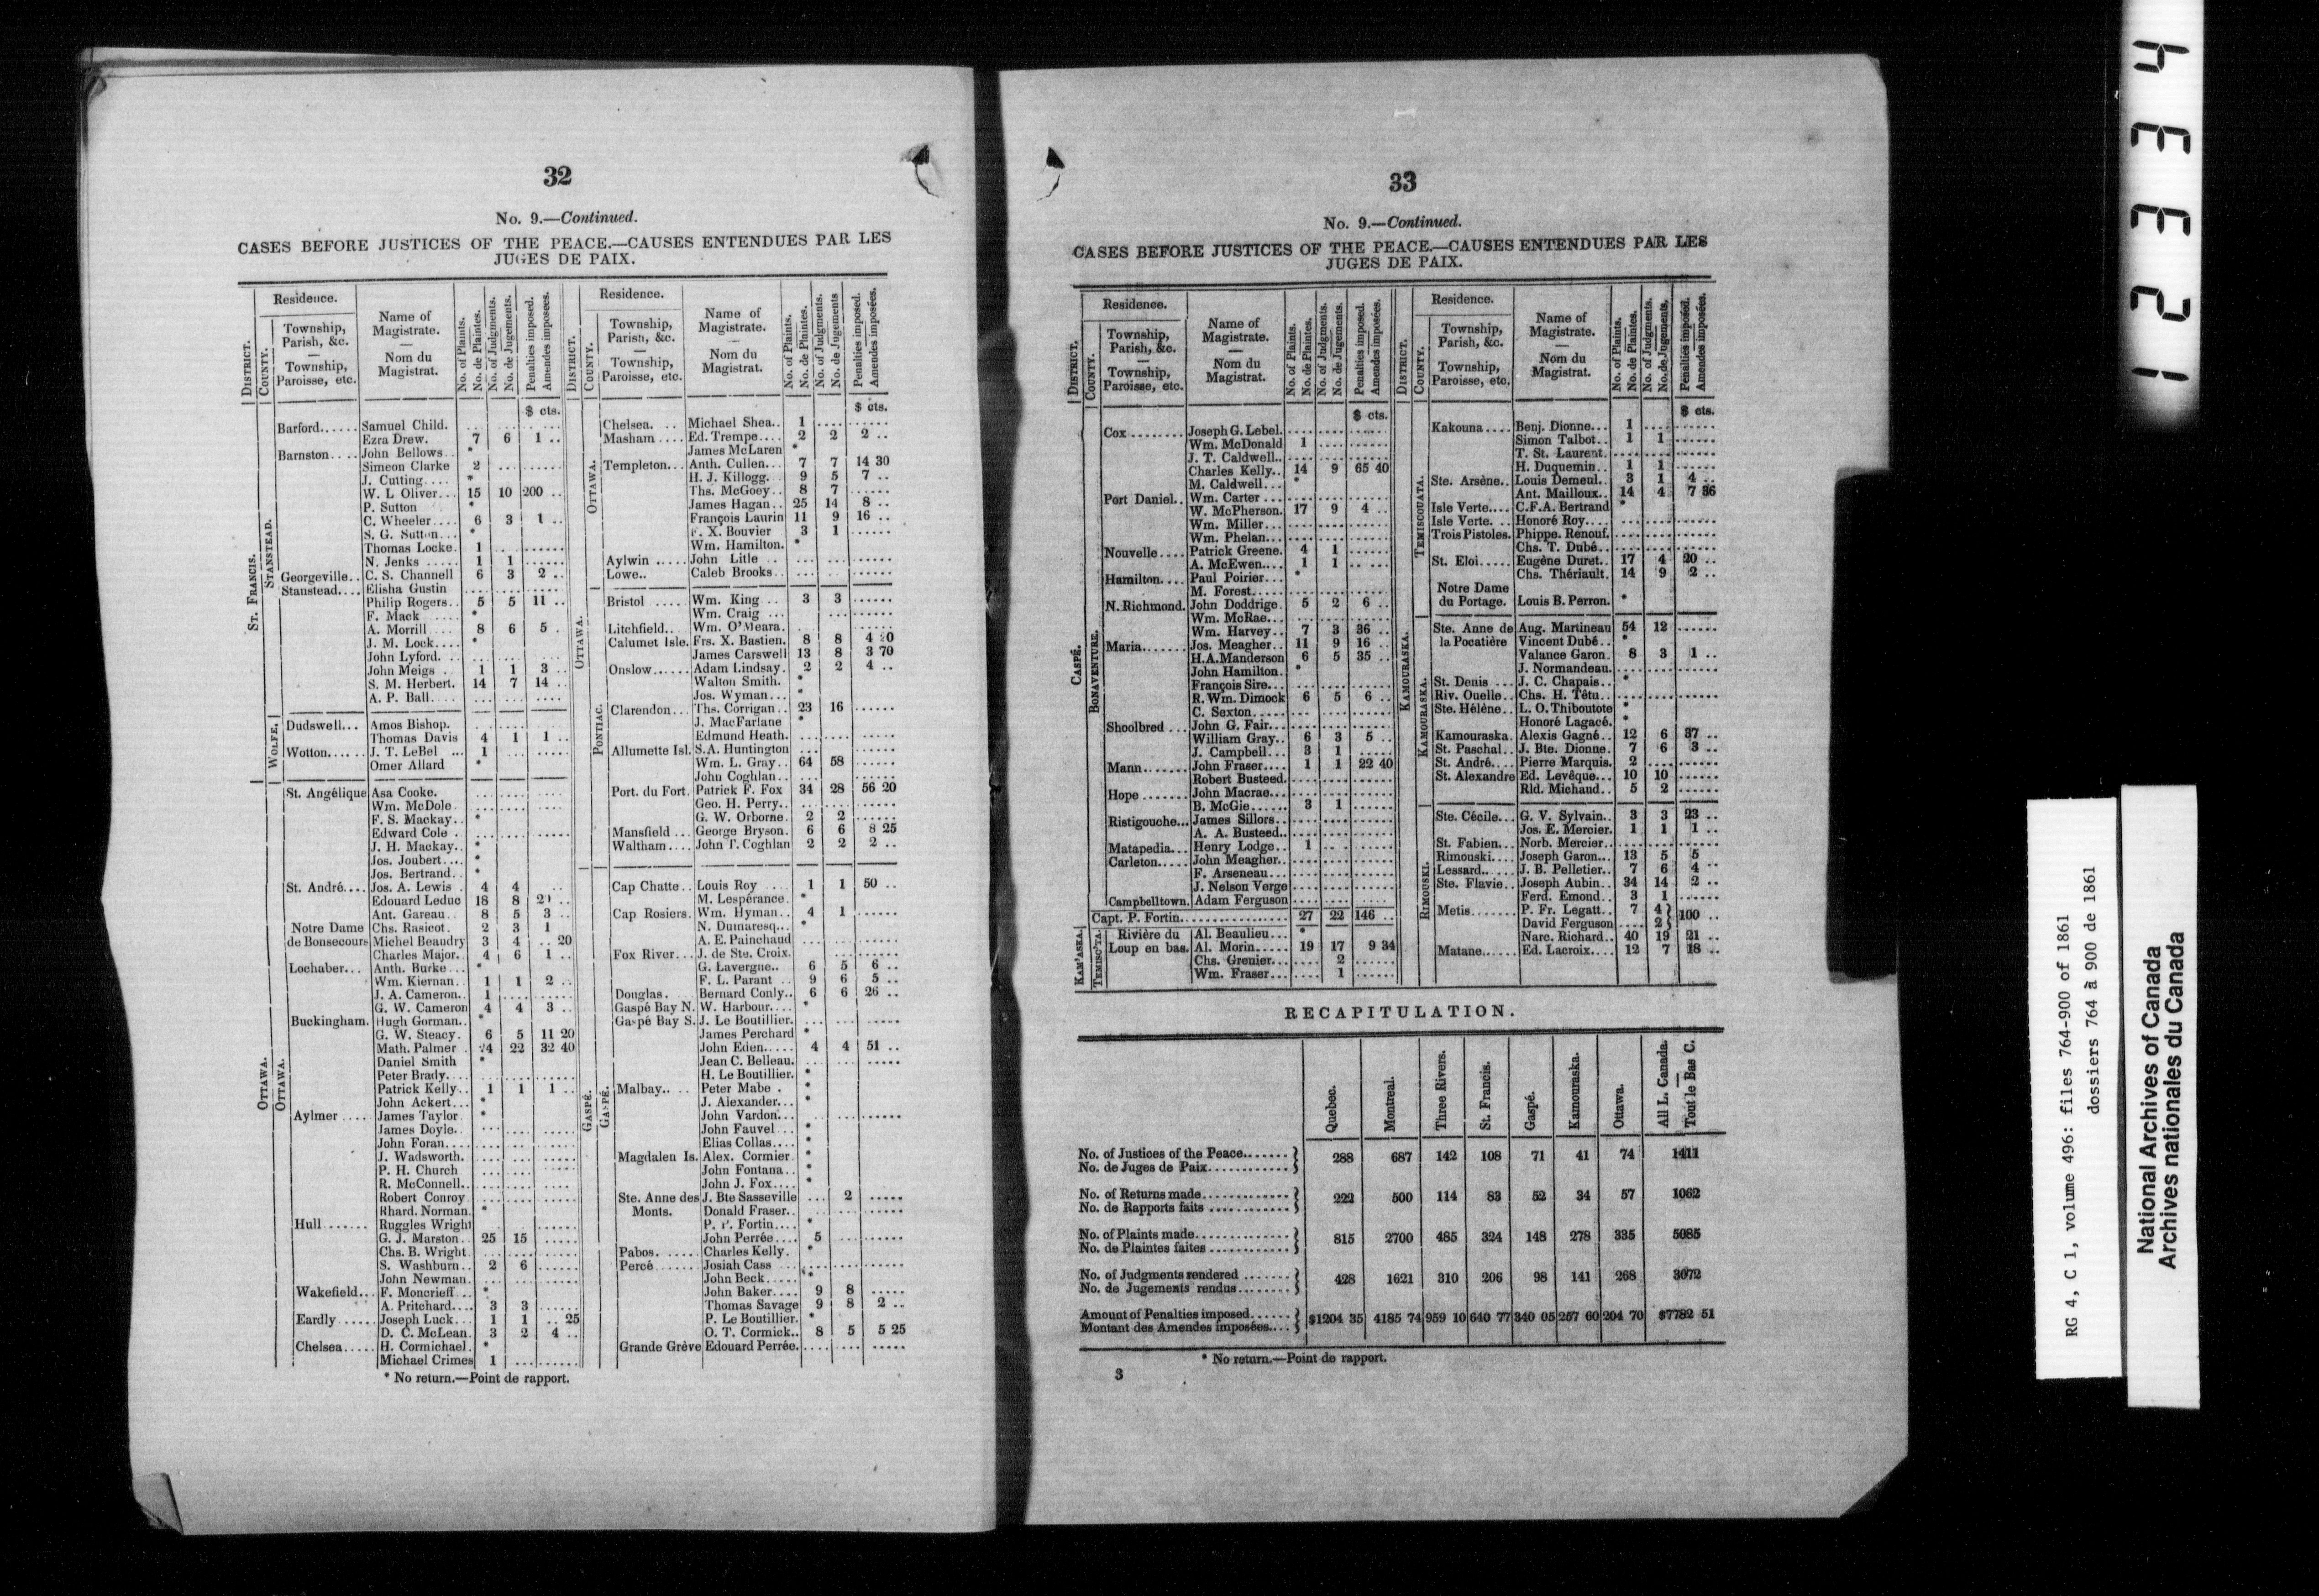 32
No. 9.—Continued.
CASES BEFORE JUSTICES OF THE PEACE.—CAUSES ENTENDUES PAR LES
JUGES DE PAIX.
DISTRICT.
COUNTY.
Residence.
Township, Parish, &c.
—
Township, Paroisse, etc.
Name of Magistrate.
—
Nom du Magistrat.
No. of Plaints.
No. de Plaintes.
No. of Judgments.
No. de Jugements.
Penalties imposed.
Amendes imposees.
$ cts.
ST. FRANCIS.
STANSTEAD.
Barford...... Samuel Child. .... .... ....
Ezra Drew. 7 6 1 ..
Barnston.... John Bellows.. *
Simeon Clarke 2 ... ......
J. Cutting.... *
W. L Oliver... 15 10 200 ..
P. Sutton *
C. Wheeler.... 6 3 1 ..
S. G. Sutton... *
Thomas Locke. 1 .. ......
N. Jenks ..... 1 1 ......
Georgeville.. C. S. Channell 6 3 2 ..
Stanstead.... Elisha Gustin .... .... ....
Philip Rogers.. 5 5 11 ..
F. Mack .... *
A. Morrill .... 8 6 5 .
J. M. Lock.... *
John Lyford. .. ... .... ......
John Meigs . 1 1 3 ..
S. M. Herbert. 14 7 14 ..
A. P. Ball.... ... .... ....
WOLFE.
Dudswell... Amos Bishop. .. .... ....
Thomas Davis 4 1 1 ..
Wotton...... J. T. LeBel ... 1 .... ......
Omer Allard *
OTTAWA.
OTTAWA.
St. Angélique Asa Cooke. .... .... ....
Wm. McDole .... .... ....
F. S. Mackay.. *
Edward Cole . .... .... ......
J. H. Mackay.. *
Jos. Joubert.... *
Jos. Bertrand.. *
St. André.... Jos. A. Lewis . 4 4 ..
Edouard Leduc 18 8 20 ..
Ant. Gareau.. 8 5 3 ..
Notre Dame Chs. Rasicot. 2 3 1
de Bonsecours Michel Beaudry 3 4 .. 20
Charles Major.. 4 6 1 ..
Lochaber... Anth. Burke... *
Wm. Kiernan.. 1 1 2 ..
J. A. Cameron.. 1 .... ......
G. W. Cameron 4 4 3 ..
Buckingham. Hugh Gorman.. *
G. W. Steacy. 6 5 11 20
Math. Palmer . 24 22 32 40
Daniel Smith *
Peter Brady.... .... .... ......
Patrick Kelly.. 1 1 1 ..
John Ackert... *
Aylmer .... James Taylor *
James Doyle.. ... .... ......
John Foran.... .... .... ......
J. Wadsworth. .... .... ......
P. H. Church .... .... ......
R. McConnell.. .... .... ....
Robert Conroy .... .... ......
Rhard. Norman. *
Hull ...... Ruggles Wright .. .. ......
G. J. Marston.. 25 15 .....
Chs. B. Wright. .... .... ......
S. Washburn.. 2 6 ......
John Newman. ... .... ......
Wakefield... F. Moncrieff... *
A. Pritchard.... 3 3 ......
Eardly...... Joseph Luck... 1 1 .. 25
D. C. McLean. 3 2 4 ..
Chelsea..... H. Cormichael. *
Michael Crimes 1 ... ......
DISTRICT.
COUNTY.
Residence.
Township, Parish, &c.
—
Township, Paroisse, etc.
Name of Magistrate.
—
Nom du Magistrat.
No. of Plaints.
No. de Plaintes.
No. of Judgments.
No. de Jugements
Penalties imposed.
Amendes imposées.
$ cts.
OTTAWA.
OTTAWA.
Chelsea. ... Michael Shea.. 1 .... ......
Masham.... Ed. Trempe.... 2 2 2 ..
James McLaren *
Templeton... Anth. Cullen... 7 7 14 30
H. J. Killogg.. 9 5 7 ..
Ths. McGoey.. 8 7 ......
James Hagan.. 25 14 8 ..
François Laurin 11 9 16 ..
F. X. Bouvier 3 1 ......
Wm. Hamilton. *
Aylwin ..... John Litle .. ... .... ......
Lowe.. Caleb Brooks.. ... .... ......
PONTIAC.
Bristol ..... Wm. King .. 3 3 ......
Wm. Craig ... ... .... ......
Litchfield.. Wm. O'Meara. ......
Calumet Isle. Frs. X. Bastien. 8 8 4 20
James Carswell 13 8 3 70
Onslow...... Adam Lindsay. 2 2 4 ..
Walton Smith. *
Jos. Wyman... *
Clarendon... Ths. Corrigan.. 23 16 ......
J. MacFarlane *
Edmund Heath. .... .... ......
Allumette Isl. S.A. Huntington .... ......
Wm. L. Gray.. 64 58 ......
John Coghlan.. ... ......
Port. du Fort. Patrick F. Fox 34 28 56 20
Geo. H. Perry.. .... .... ......
G. W. Orborne. 2 2 ......
Mansfield ... George Bryson. 6 6 8 25
Waltham.... John T. Coghlan 2 2 2 ..
GASPÉ.
GASPÉ.
Cap Chatte.. Louis Roy .... 1 1 50 ..
M. Lespérance. *
Cap Rosiers. Wm. Hyman.. 4 1 ......
N. Dumaresq... *
A. E. Painchaud .... .... ......
Fox River... J. de Ste. Croix. .... .... ......
G. Lavergne.. 6 5 6 ..
F. L. Parant .. 9 6 5 ..
Douglas. Bernard Conly.. 6 6 26 ..
Gaspé Bay N. W. Harbour.... *
Gaspé Bay S. J. Le Boutillier. ... .... ......
James Perchard *
John Eden..... 4 4 51 ..
Jean C. Belleau. .. .... ......
H. Le Boutillier. *
Malbay.. .. Peter Mabe . *
J. Alexander... *
John Vardon... .. .... ......
John Fauvel... *
Elias Collas.... *
Magdalen Is. Alex. Cormier. *
John Fontana.. *
John J. Fox.... *
Ste. Anne des J. Bte Sasseville ... 2 .....
Monts. Donald Fraser.. ... .... ......
P. F. Fortin.... *
John Perrée.... 5 .... ......
Pabos. ..... Charles Kelly. *
Percé....... Josiah Cass ... .... .... ......
John Beck..... *
John Baker.... 9 8 .....
Thomas Savage 9 8 2 ..
P. Le Boutillier. *
O. T. Cormick.. 8 5 5 25
Grande Grève Edouard Perrée. .... .... .....
* No return.—Point de rapport.
33
No. 9.—Continued.
CASES BEFORE JUSTICES OF THE PEACE.—CAUSES ENTENDUES PAR LES
JUGES DE PAIX.
DISTRICT.
COUNTY.
Residence.
Township, Parish, &c.
—
Township, Paroisse, etc.
Name of Magistrate.
—
Nom du Magistrat.
No. of Plaints.
No. de Plaintes.
No. of Judgments.
No. de Jugements.
Penalties imposed.
Amendes imposées.
$ cts.
GASPÉ.
BONAVENTURE.
Cox........ Joseph G. Lebel. .... .... ......
Wm. McDonald 1 .... ......
J. T. Caldwell.. .... .... ......
Charles Kelly.. 14 9 65 40
M. Caldwell... *
Port Daniel.. Wm. Carter ... .... .... ......
W. McPherson. 17 9 4 ..
Wm. Miller... .... .... ......
Wm. Phelan... .... .... ......
Nouvelle.... Patrick Greene. 4 1 ......
A. McEwen.... 1 1 ......
Hamilton.... Paul Poirier... *
M. Forest..... .... .... ......
N. Richmond. John Doddrige. 5 2 6 ..
Wm. McRae... .... .... ......
Wm. Harvey.. 7 3 36 ..
Maria....... Jos. Meagher.. 11 9 16 ..
H.A.Manderson 6 5 35 ..
John Hamilton. *
François Sire... .... .... ......
R. Wm. Dimock 6 5 6 ..
C. Sexton..... .... .... ......
Shoolbred ... John G. Fair... .... .... ......
William Gray.. 6 3 5 ..
J. Campbell... 3 1 ......
Mann....... John Fraser.... 1 1 22 40
Robert Busteed. .... .... ......
Hope ....... John Macrae... .... .... ......
B. McGie...... 3 1 ......
Ristigouche... James Sillors.. .... .... ......
A. A. Busteed.. .... .... ......
Matapedia... Henry Lodge.. 1 .... ......
Carleton..... John Meagher.. .... .... ......
F. Arseneau... .... .... ......
J. Nelson Verge .... .... ......
Campbelltown. Adam Ferguson .... .... ....
Capt. P. Fortin................ 27 22 146 ..
KAM'ASKA.
TEMISC'TA.
Rivière du Al. Beaulieu... *
Loup en bas. Al. Morin..... 19 17 9 34
Chs. Grenier... .... 2 ......
Wm. Fraser... .... 1 ......
DISTRICT.
COUNTY.
Residence.
Township, Parish, &c.
Township, Paroisse, etc.
Name of Magistrate.
—
Nom du Magistrat.
No. of Plaints.
No. de Plaintes.
No. of Judgments.
No. de Jugements,
Penalties imposed.
Amendes imposées.
$ cts.
KAMOURASKA.
TEMISCOUATA.
Kakouna.... Benj. Dionne... 1 .... ......
Simon Talbot.. 1 1 ......
T. St. Laurent. .... .... ......
H. Duquemin.. 1 1 ......
Ste. Arsène.. Louis Demeul.. 3 1 4 ..
Ant. Mailloux.. 14 4 7 36
Isle Verte.... C.F.A. Bertrand *
Isle Verte. .. Honoré Roy.... .... .... ......
Trois Pistoles. Phippe. Renouf. .... .... ......
Chs. T. Dubé.. .... .... ......
St. Eloi..... Eugène Duret.. 17 4 20 ..
Chs. Thériault. 14 9 2 ..
Notre Dame
du Portage. Louis B. Perron. *
KAMOURASKA.
Ste. Anne de Aug. Martineau 54 12 ......
la Pocatière Vincent Dubé.. *
Valance Garon. 8 3 1 ..
J. Normandeau. .... .... ......
St. Denis ... J. C. Chapais.. *
Riv. Ouelle.. Chs. H. Têtu.. .... .... ......
Ste. Hélène.. L. O. Thiboutote *
Honoré Lagacé. *
Kamouraska. Alexis Gagné.. 12 6 37 ..
St. Paschal.. J. Bte. Dionne. 7 6 3 ..
St. André.... Pierre Marquis. 2 .... ......
St. Alexandre Ed. Levêque... 10 10 ......
Rld. Michaud.. 5 2 ......
RIMOUSKI.
Ste. Cécile... G. V. Sylvain.. 3 3 23 ..
Jos. E. Mercier. 1 1 1 ..
St. Fabien... Norb. Mercier.. .... .... ......
Rimouski.... Joseph Garon... 13 5 5 ..
Lessard..... J. B. Pelletier.. 7 6 4 ..
Ste. Flavie.. Joseph Aubin.. 34 14 2 ..
Ferd. Emond.. 3 1 ......
Metis....... P. Fr. Legatt.. 7 4 } 100 ..
David Ferguson .... 2 }
Narc. Richard.. 40 19 21 ..
Matane...... Ed. Lacroix.... 12 7 18 ..
RECAPITULATION.
Quebec. Montreal. Three Rivers. St. Francis. Gaspé. Kamouraska. Ottawa. All L. Canada. — Tout le Bas C.
No. of Justices of the Peace....... }
No. de Juges de Paix............ } 288 687 142 108 71 41 74 1411
No. of Returns made............. }
No. de Rapports faits ............ } 222 500 114 83 52 34 57 1062
No. of Plaints made............. }
No. de Plaintes faites ............ } 815 2700 485 324 148 278 335 5085
No. of Judgments rendered ....... }
No. de Jugements rendus........ } 428 1621 310 206 98 141 268 3072
Amount of Penalties imposed...... }
Montant des Amendes imposées.... } $1204 35 4185 74 959 10 640 77 340 05 257 60 204 70 $7782 51
* No return.—Point de rapport.
3
1 2 3 3 4
RG 4, C 1, volume 496: files 764-900 of 1861
dossiers 764 à 900 de 1861
National Archives of Canada
Archives nationales du Canada